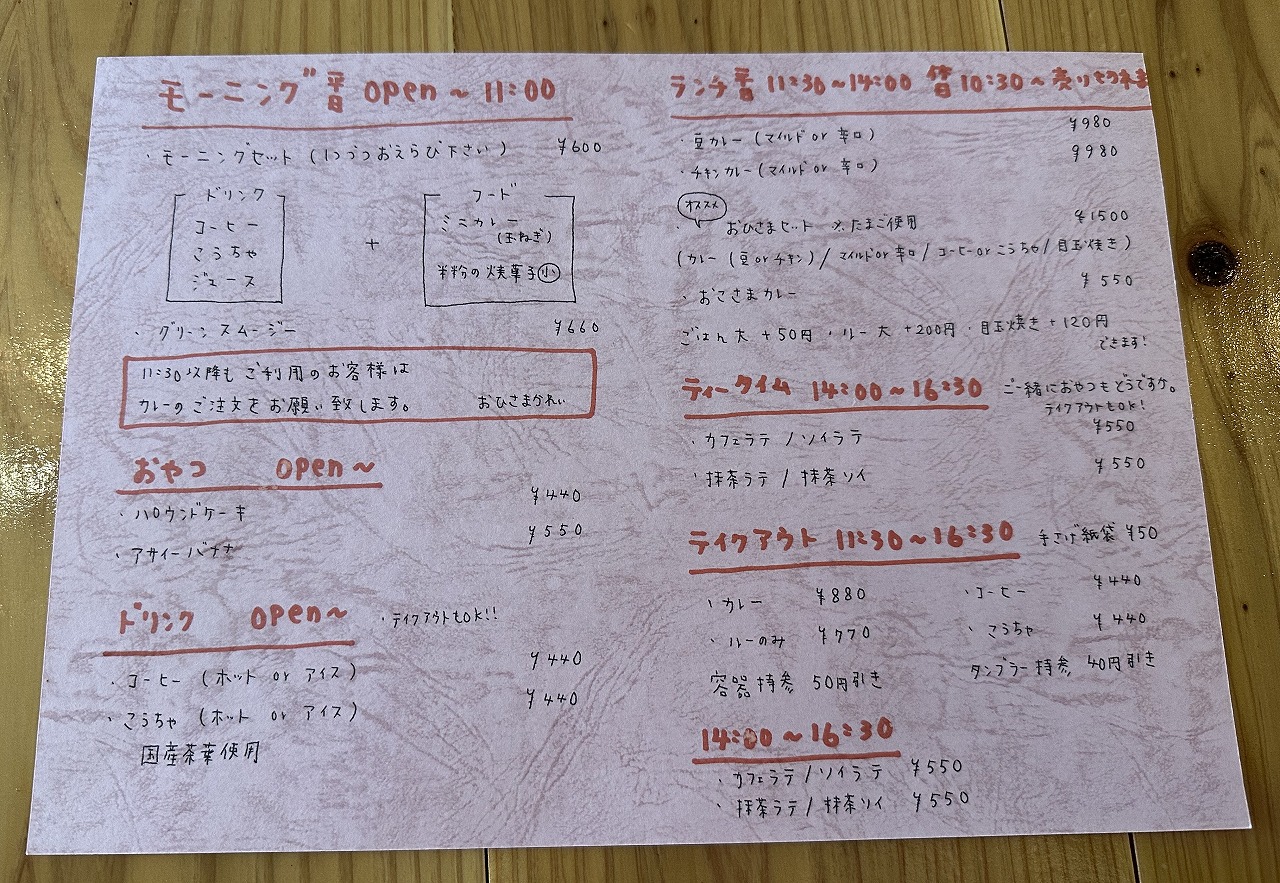 モーニング 平日 open～11:00
・モーニングセット(1つづつおえらび下さい) ¥600
ドリンク
コーヒー
こうちゃ
ジュース
+
フード
ミニカレー
(玉ねぎ)
米粉の焼菓子 小
・グリーンスムージー ¥660
11:30以降も ご利用のお客様は
カレーのご注文をお願い致します。 おひさまかれい
おやつ open～
・パウンドケーキ ¥440
・アサイーバナナ ¥550
ドリンク open～ ・テイクアウトもOK!!
・コーヒー (ホット or アイス) ¥440
・こうちゃ (ホット or アイス) ¥440
国産茶葉使用
ランチ 平日 11:30～14:00 10:30～売り切れま
・豆カレー(マイルド or 辛口) ¥980
・チキンカレー(マイルド or 辛口) ¥980
オススメ
・おひさまセット ※たまご使用 ¥1500
(カレー(豆 or チキン)/マイルド or 辛口/コーヒー or こうちゃ/目玉焼き)
・おこさまカレー ¥550
ごはん大 +50円・ルー大 +200円・目玉焼き +120円
できます!
ティータイム 14:00～16:30 ご一緒におやつもどうですか。
テイクアウトもOK!
・カフェラテ/ソイラテ ¥550
・抹茶ラテ/抹茶ソイ ¥550
テイクアウト 11:30～16:30 手さげ紙袋 ¥50
・カレー ¥880
・ルーのみ ¥770
容器持参 50円引き
・コーヒー ¥440
・こうちゃ ¥440
タンブラー持参 40円引き
14:00～16:30
・カフェラテ/ソイラテ ¥550
・抹茶ラテ/抹茶ソイ ¥550